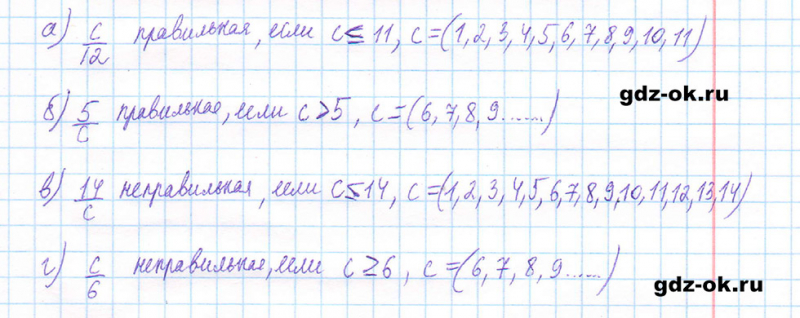 а) с/12 правильная, если с ≤ 11, с=(1,2,3,4,5,6,7,8,9,10,11)
gdz-ok.ru
б) 5/с правильная, если с>5, с=(6,7,8,9......)
в) 14/с неправильная, если с≤14, с=(1,2,3,4,5,6,7,8,9,10,11,12,13,14)
г) с/6 неправильная, если с≥6, с=(6,7,8,9......)
gdz-ok.ru